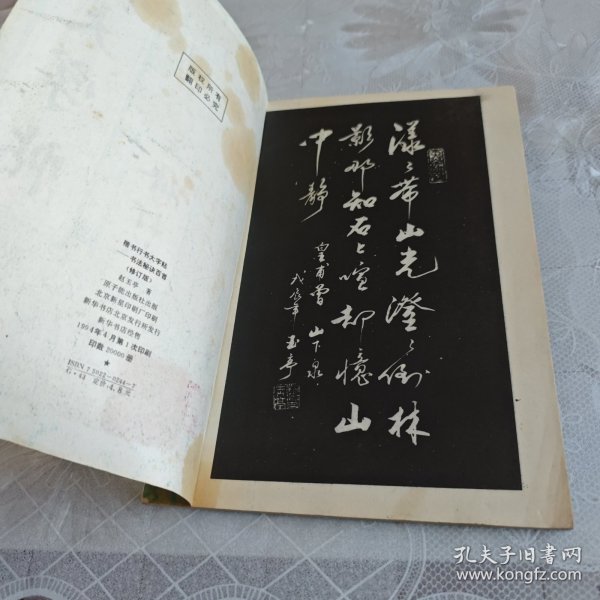 版权所有
翻印必究
楷书行书大字帖
——书法秘诀百首
(修订版)
赵玉亭 著
原子能出版社出版
北京新星印刷厂印刷
新华书店北京发行所发行
新华书店经售
1994年4月第1次印刷
印数20000册
★
ISBN7-5022-0284-7
漾〻带山光澄〻倒林
影那知石上喧却憶山
中静
皇甫曾 山下泉
戊辰年 玉亭
孔夫子旧书网
www.kongfz.com